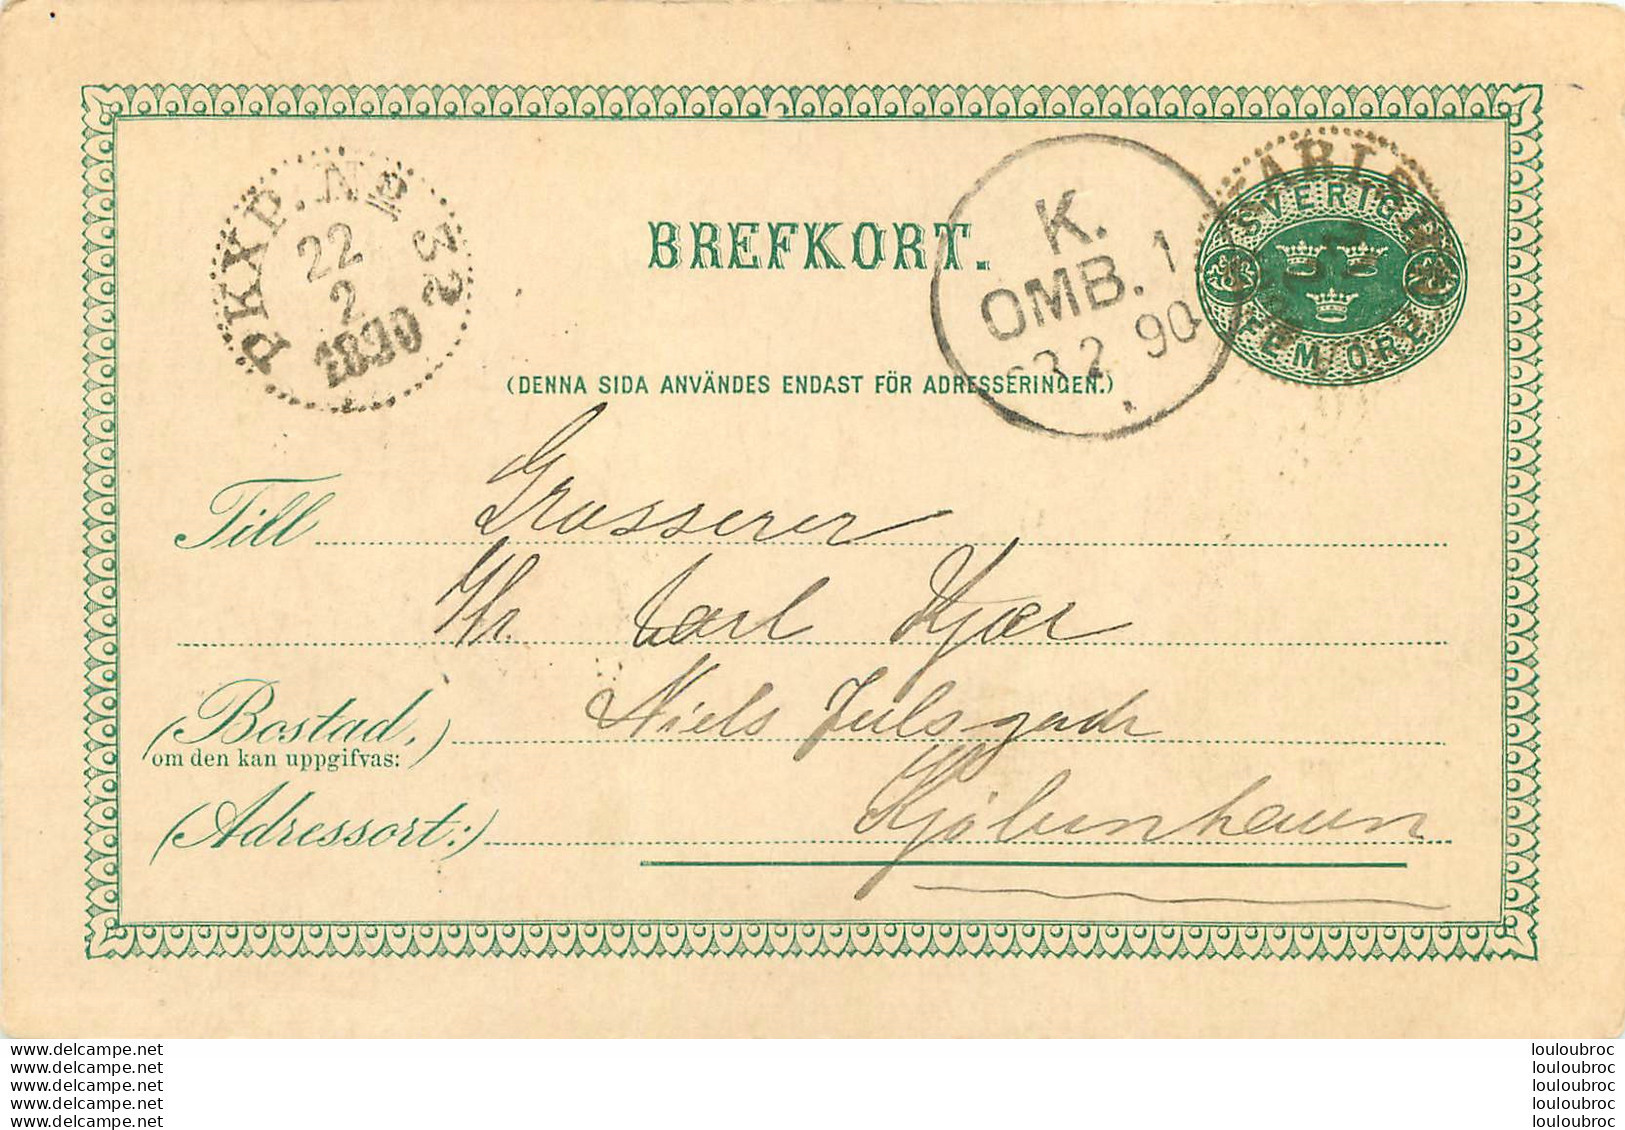 PKXP. Nr 2
22
2
1890
BREFKORT.
K.
OMB. 1
2 90
SVERIGE
FEM ÖRE
(DENNA SIDA ANVÄNDES ENDAST FÖR ADRESSERINGEN.)
Till Grosserer
Hr. Carl Kjær
(Bostad,) Niels Juelsgade
om den kan uppgifvas:
(Adressort:) Kjöbenhavn
www.delcampe.net louloubroc
www.delcampe.net louloubroc
www.delcampe.net louloubroc
www.delcampe.net louloubroc
www.delcampe.net louloubroc